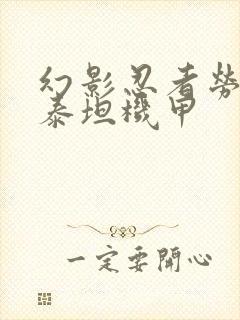 幻影忍者勞
泰坦機甲
一定要開心